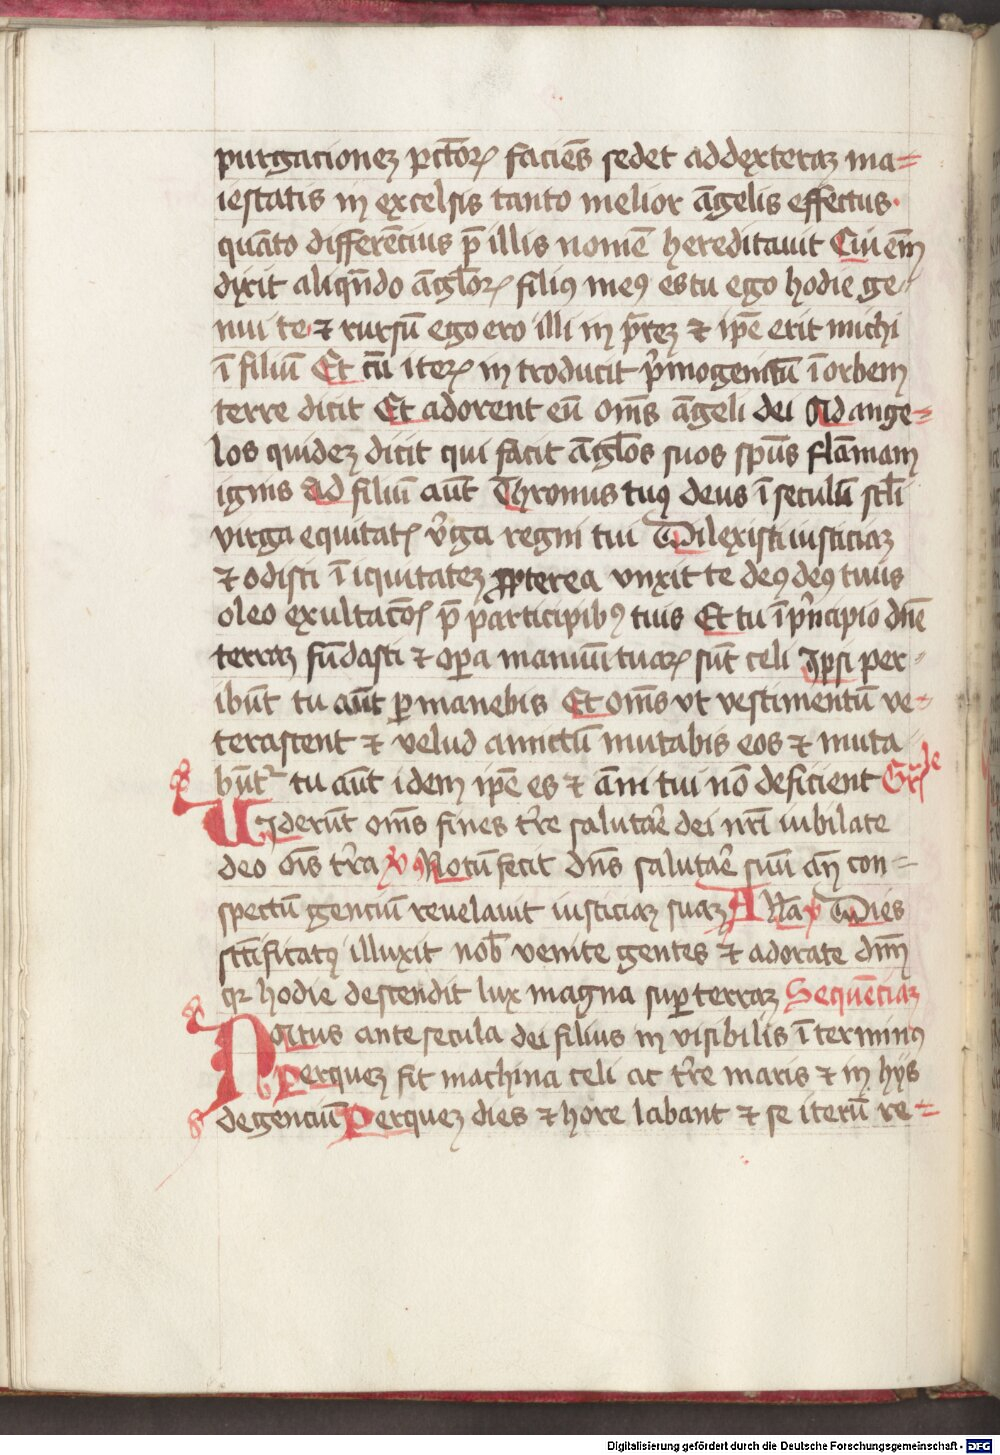 purgacionez pctoꝝ faciēs sedet ad dexteraz ma=
iestatis in excelsis tanto melior āgelis effectus·
quāto differēcius p̄ illis nomē hereditauit Cui em̄
dixit aliqn̄do āgloꝝ filiꝯ meꝯ es tu ego hodie ge⸗
nui te ⁊ rursū ego ero illi in pr̄ez ⁊ ip̄e erit michi
ī filiū Et cū iteꝝ in troducit p̓mogenitū ī orbem
terre dicit Et adorent eū om̄s āgeli dei Ad ange=
los quidez dicit qui facit āgl̄os suos sp̄us flāmam
ignis Ad filiū aūt Thronus tuꝯ deus ī seculū scl̄i
virga equitatꝭ v̓ga regni tui Dilexisti iusticiaz
⁊ odisti ī iquitatez ꝓpterea vnxit te deꝯ deꝯ tuus
oleo exultac̄oꝭ p̄ participibꝯ tuis Et tu ī p̓ncipio dn̄e
terraz fūdasti ⁊ oꝑa manuū tuaꝝ sūt celi Ipsi per⸗
ibūt tu aūt ꝑmanebis Et om̄s vt vestimentū ve=
terascent ⁊ velud amictū mutabis eos ⁊ muta
būt᷑ tu aūt idem ip̄e es ⁊ ām tui nō deficient Gr̄le
Uiderūt om̄s fines tr̄e salutar̄e dei nr̄i iubilate
deo ōis tr̄a vꝯ Notū fecit dn̄s salutar̄e suū an̄ con=
spectū genciū reuelauit iusticiaz suaz Alla p̄ Dies
sct̄ificatꝯ illuxit nob̄ venite gentes ⁊ adorate dn̄m
qꝛ hodie descendit lux magna suꝑ terraz Sequēciaz
Natus ante secula dei filius in visibilis ī terminꝯ
Per quez fit machina celi ac tr̄e maris ⁊ in hys
degenciū Per quez dies ⁊ hore labant ⁊ se iterū re=
Digitalisierung gefördert durch die Deutsche Forschungsgemeinschaft - DFG